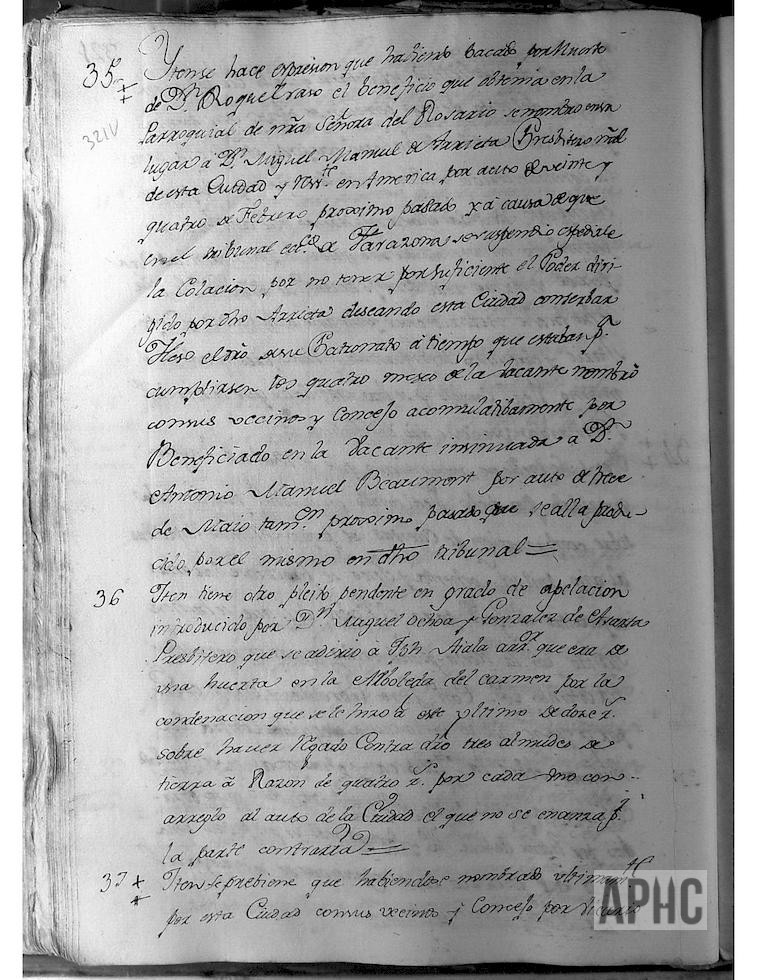 35 Yten se hace expresion que habiendo bacado por Muerte
de Dn. Roque Traso el beneficio que obtenia en la
321v
Parroquial de nra Señora del Rosario se nombro en su
lugar a Dn. Miguel Manuel de Arrieta Presbitero nãl
de esta Ciudad y en America por auto de veinte y
quatro de Febrero proximo pasado y a causa de que
en el tribunal ecco. de Tarazona se suspendio espedirle
la Colacion por no tener por suficiente el Poder diri-
gido por dho Arrieta deseando esta Ciudad conserbar
el dro de su Patronato a tiempo que estaban pa.
cumplirsen los quatro meses de la bacante nombró
con sus vecinos y Concejo acomulatibamente por
Beneficiado en la bacante insinuada a Dn.
Antonio Manuel Beaumont por auto de trece
de Maio tamen. proximo pasado que se alla produ-
cido por el mismo en dho tribunal =
36 Iten tiene otro pleito pendente en grado de apelacion
introducido por Dn. Miguel Ochoa y Gonzalez de Asarta
Presbitero que se adirio a Jph. Aiala arror. que era de
una huerta en la Alboleda del carmen por la
condenacion que se le hizo a este ultimo de doze rs.
sobre haver regado Contra dro tres almudes de
tierra a Razon de quatro rs. por cada uno con
arreglo al auto de la Ciudad el que no se enanza pr.
la parte contraria =
37 Iten se prebiene que habiendose nombrado ultimamte
por esta Ciudad con sus vecinos y Concejo por Vicario
APHC